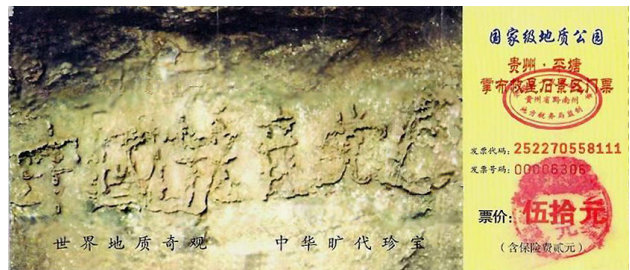 中國共産党亡
世界地质奇观 中华旷代珍宝
国家级地质公园
贵州·平塘
掌布救星石景区门票
贵州省黔南州
地方税务局监制
发票代码: 252270558111
发票号码: 00006306
票价: 伍拾元
（含保险费贰元）